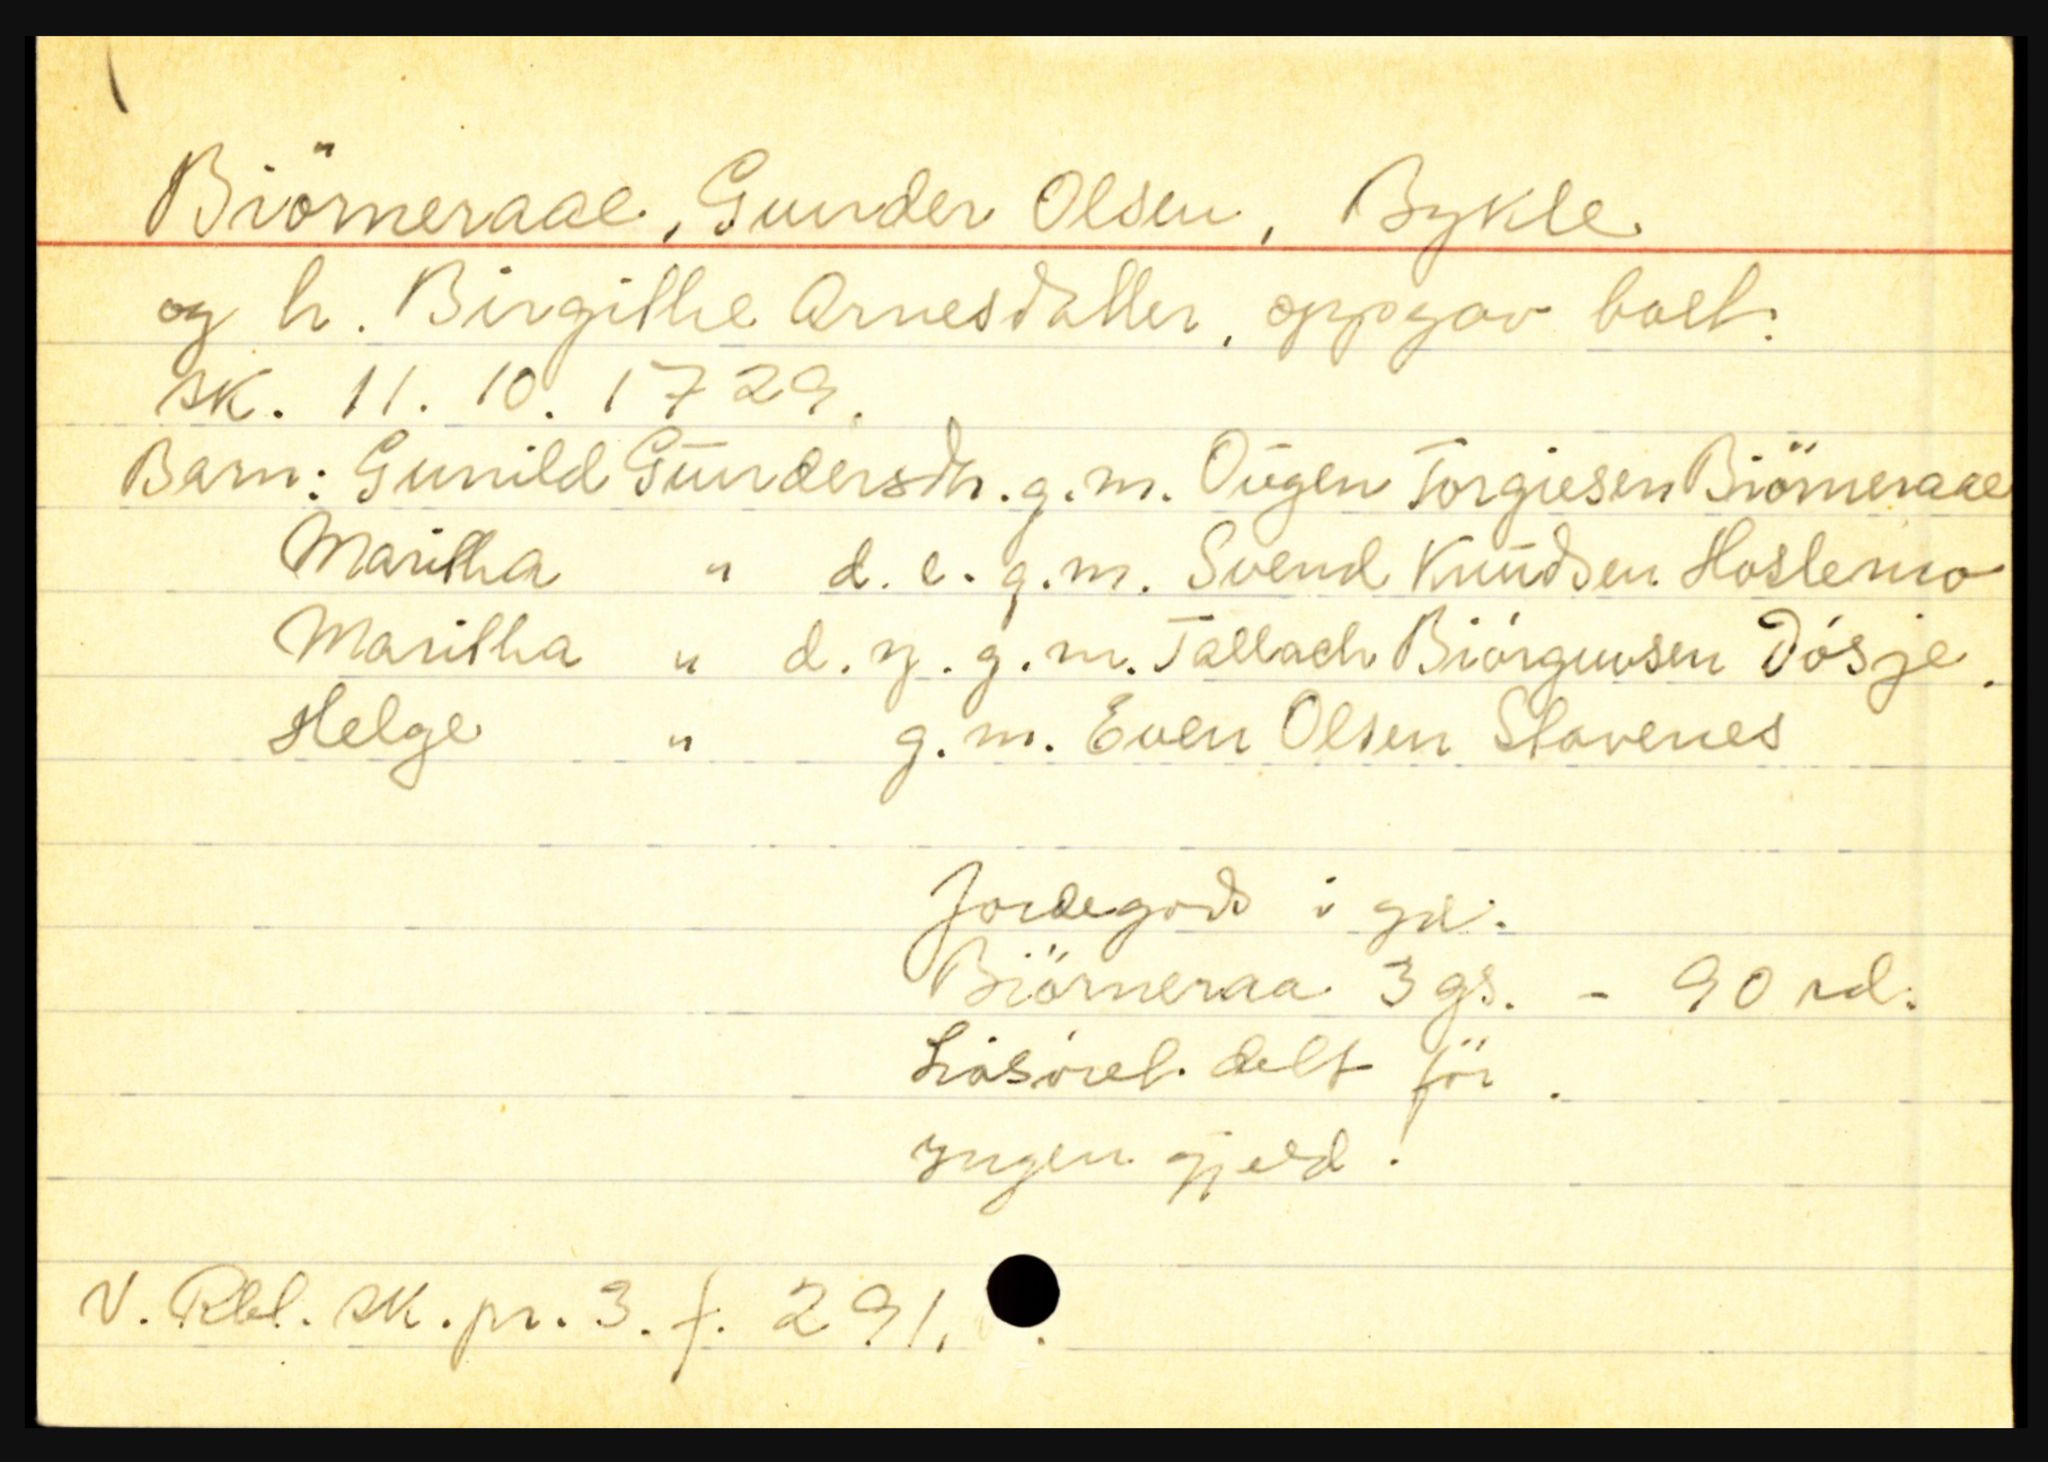 Biörneraae, Gunder Olsen, Bykle
og h. Birgithe Arnesdatter, oppgav boet.
sk. 11. 10. 1729.
Barn: Gunild Gündersdtr. g.m. Oügen Torgiesen Biörneraae
Maritha " d.e. g.m. Svend Knüdsen Hoslemo
Maritha " d.y. g.m. Tallach Biórguvsen Dósje.
Helge " g.m. Even Olsen Stavenes
Jordegods i gd.
Biörneraa 3 gs. - 90 rd.
Lösöret delt för.
Yngen gjeld.
V. Rbl. sk. pr. 3. f. 291.